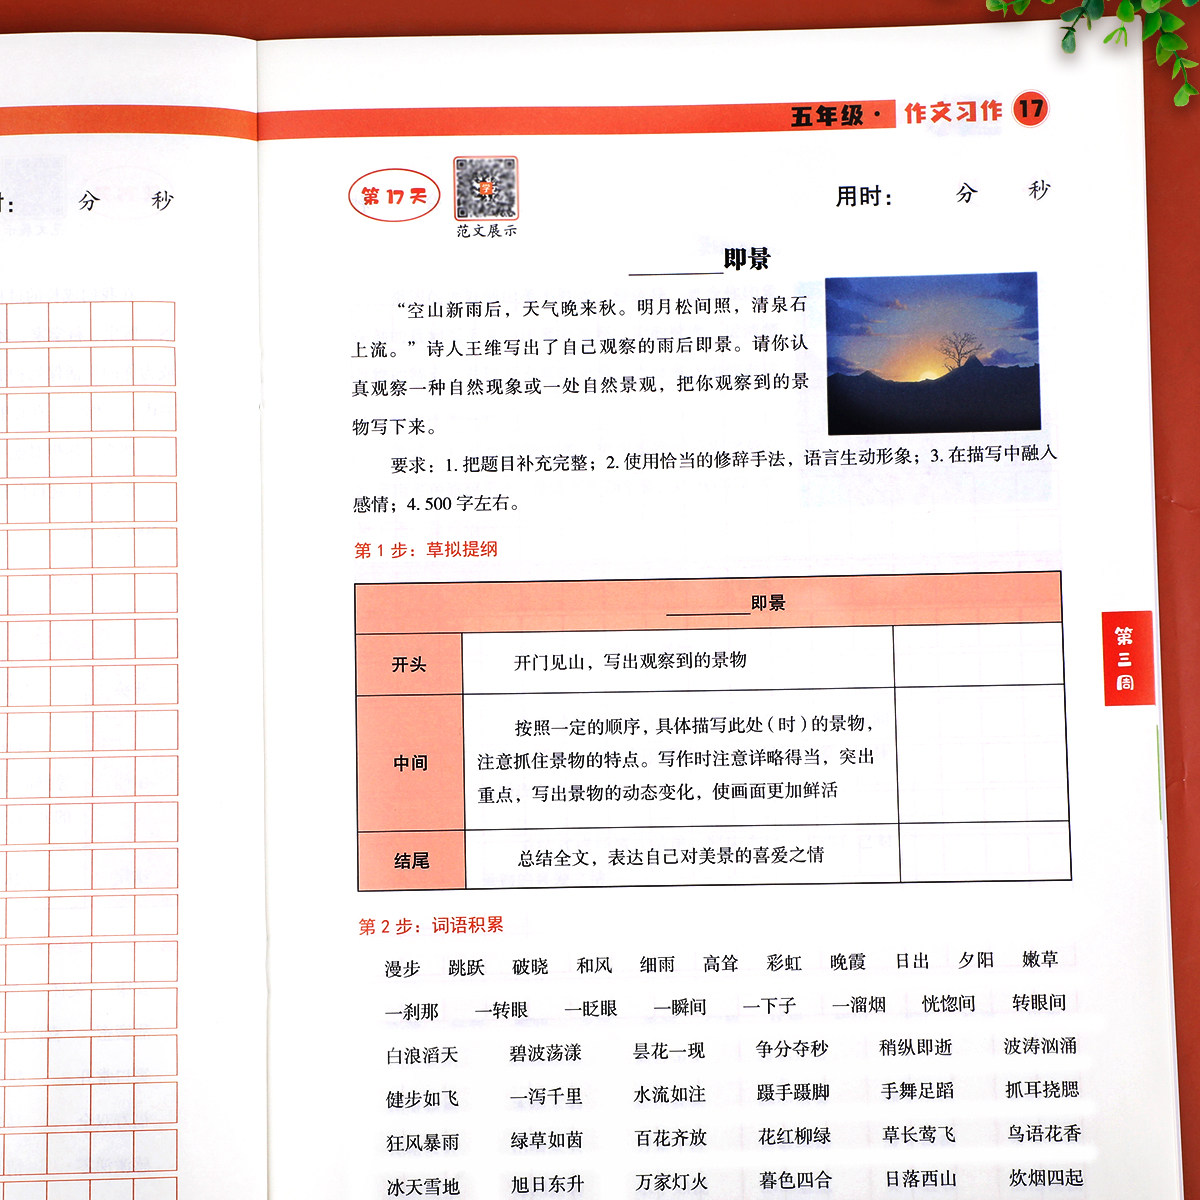 五年级·作文习作 17
时： 分 秒
第17天
范文展示
用时： 分 秒
________即景
“空山新雨后，天气晚来秋。明月松间照，清泉石
上流。”诗人王维写出了自己观察的雨后即景。请你认
真观察一种自然现象或一处自然景观，把你观察到的景
物写下来。
要求：1. 把题目补充完整；2. 使用恰当的修辞手法，语言生动形象；3. 在描写中融入
感情；4. 500 字左右。
第1步：草拟提纲
________即景
开头 开门见山，写出观察到的景物
中间
按照一定的顺序，具体描写此处（时）的景物，
注意抓住景物的特点。写作时注意详略得当，突出
重点，写出景物的动态变化，使画面更加鲜活
结尾 总结全文，表达自己对美景的喜爱之情
第三周
第2步：词语积累
漫步 跳跃 破晓 和风 细雨 高耸 彩虹 晚霞 日出 夕阳 嫩草
一刹那 一转眼 一眨眼 一瞬间 一下子 一溜烟 恍惚间 转眼间
白浪滔天 碧波荡漾 昙花一现 争分夺秒 稍纵即逝 波涛汹涌
健步如飞 一泻千里 水流如注 蹑手蹑脚 手舞足蹈 抓耳挠腮
狂风暴雨 绿草如茵 百花齐放 花红柳绿 草长莺飞 鸟语花香
冰天雪地 旭日东升 万家灯火 暮色四合 日落西山 炊烟四起